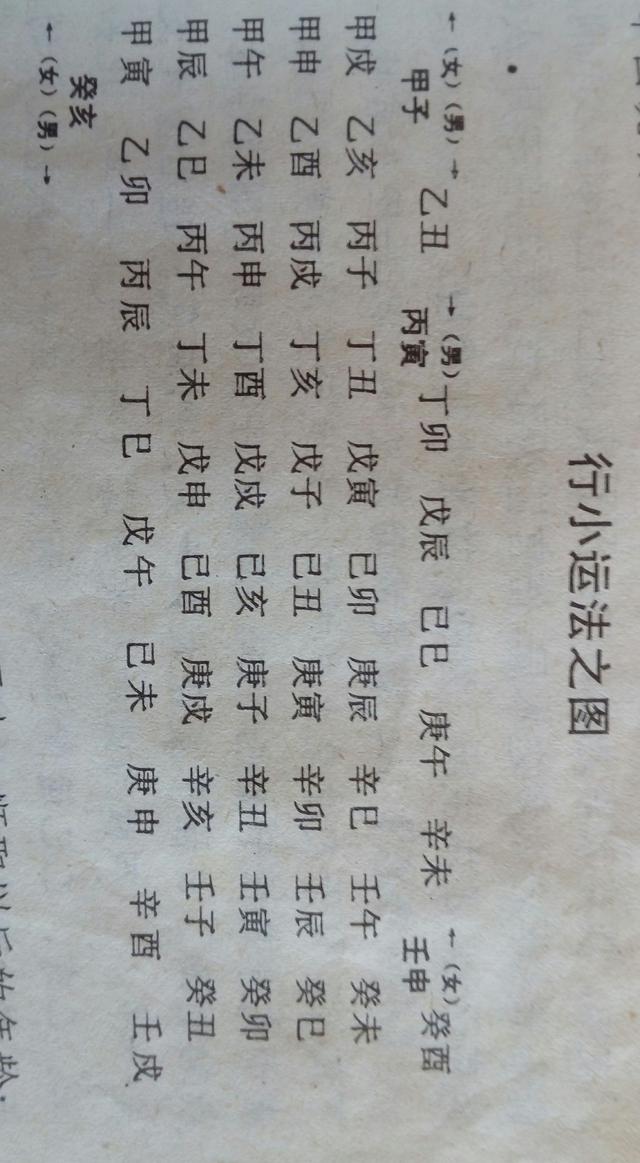 行小运法之图
←（女）（男）→ →（男） ←（女）
甲子 乙丑 丙寅 丁卯 戊辰 已巳 庚午 辛未 壬申 癸酉
甲戍 乙亥 丙子 丁丑 戊寅 已卯 庚辰 辛巳 壬午 癸未
甲申 乙酉 丙戍 丁亥 戊子 已丑 庚寅 辛卯 壬辰 癸巳
甲午 乙未 丙申 丁酉 戊戍 已亥 庚子 辛丑 壬寅 癸卯
甲辰 乙巳 丙午 丁未 戊申 已酉 庚戍 辛亥 壬子 癸丑
甲寅 乙卯 丙辰 丁巳 戊午 已未 庚申 辛酉 壬戍
癸亥
←（女）（男）→
以后的年龄.